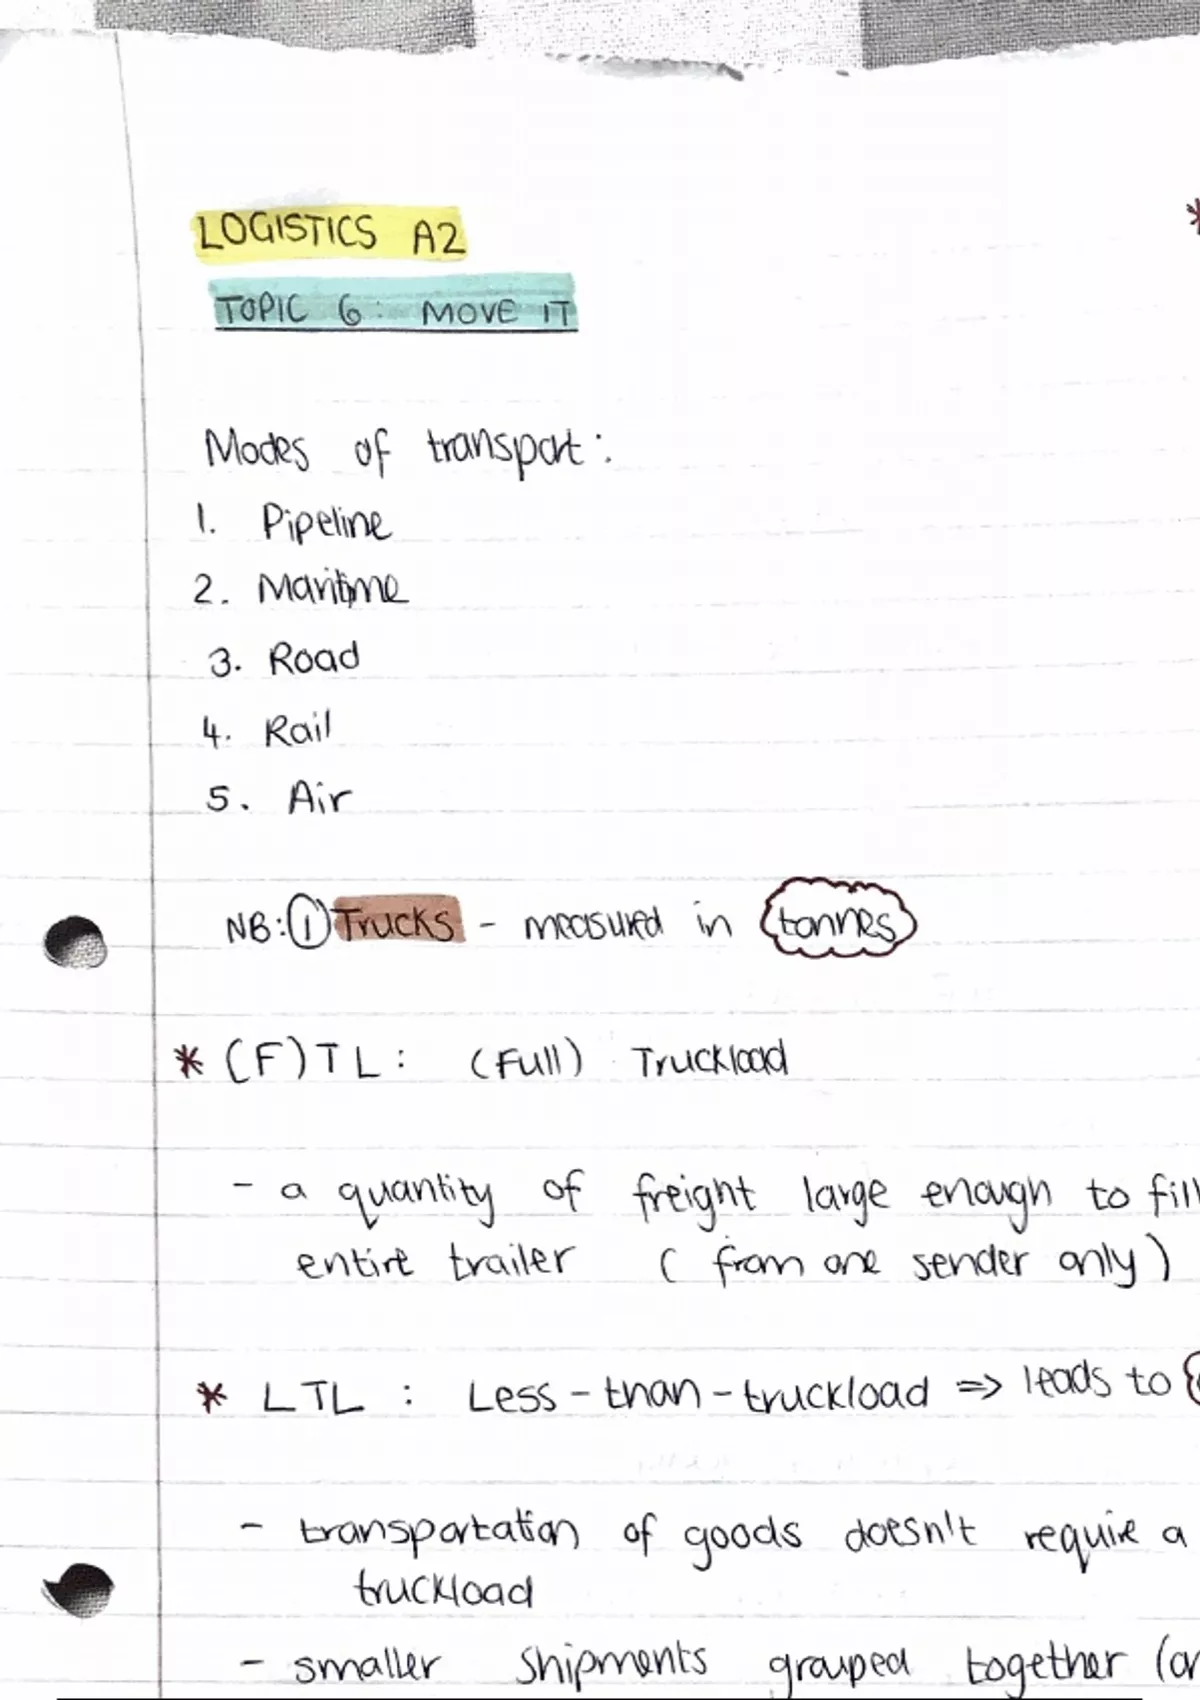 LOGISTICS A2
TOPIC 6: MOVE IT
Modes of transport:
1. Pipeline
2. Maritime
3. Road
4. Rail
5. Air
NB: ① Trucks - measured in tonnes
* (F)TL: (Full) Truckload
- a quantity of freight large enough to fill
entire trailer (from one sender only)
* LTL: Less-than-truckload => leads to
- transportation of goods doesn't require a
truckload
- smaller shipments grouped together